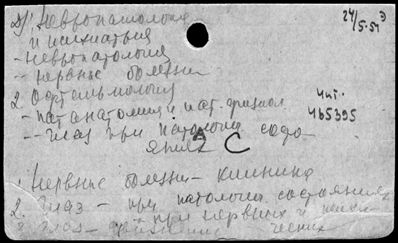 1) Невропатология
и психиатрия
24/5-51
- Невропатология
-- нервные болезни
2. Офтальмология
- пат анатомия и пат. физиол.
-- глаз при патологии состо-
яниях
А С
чит.
465395
1. Нервные болезни - клиника
2. Глаз - при патологии состояниях
при нервных и психи-
ческих
3. Глаз -